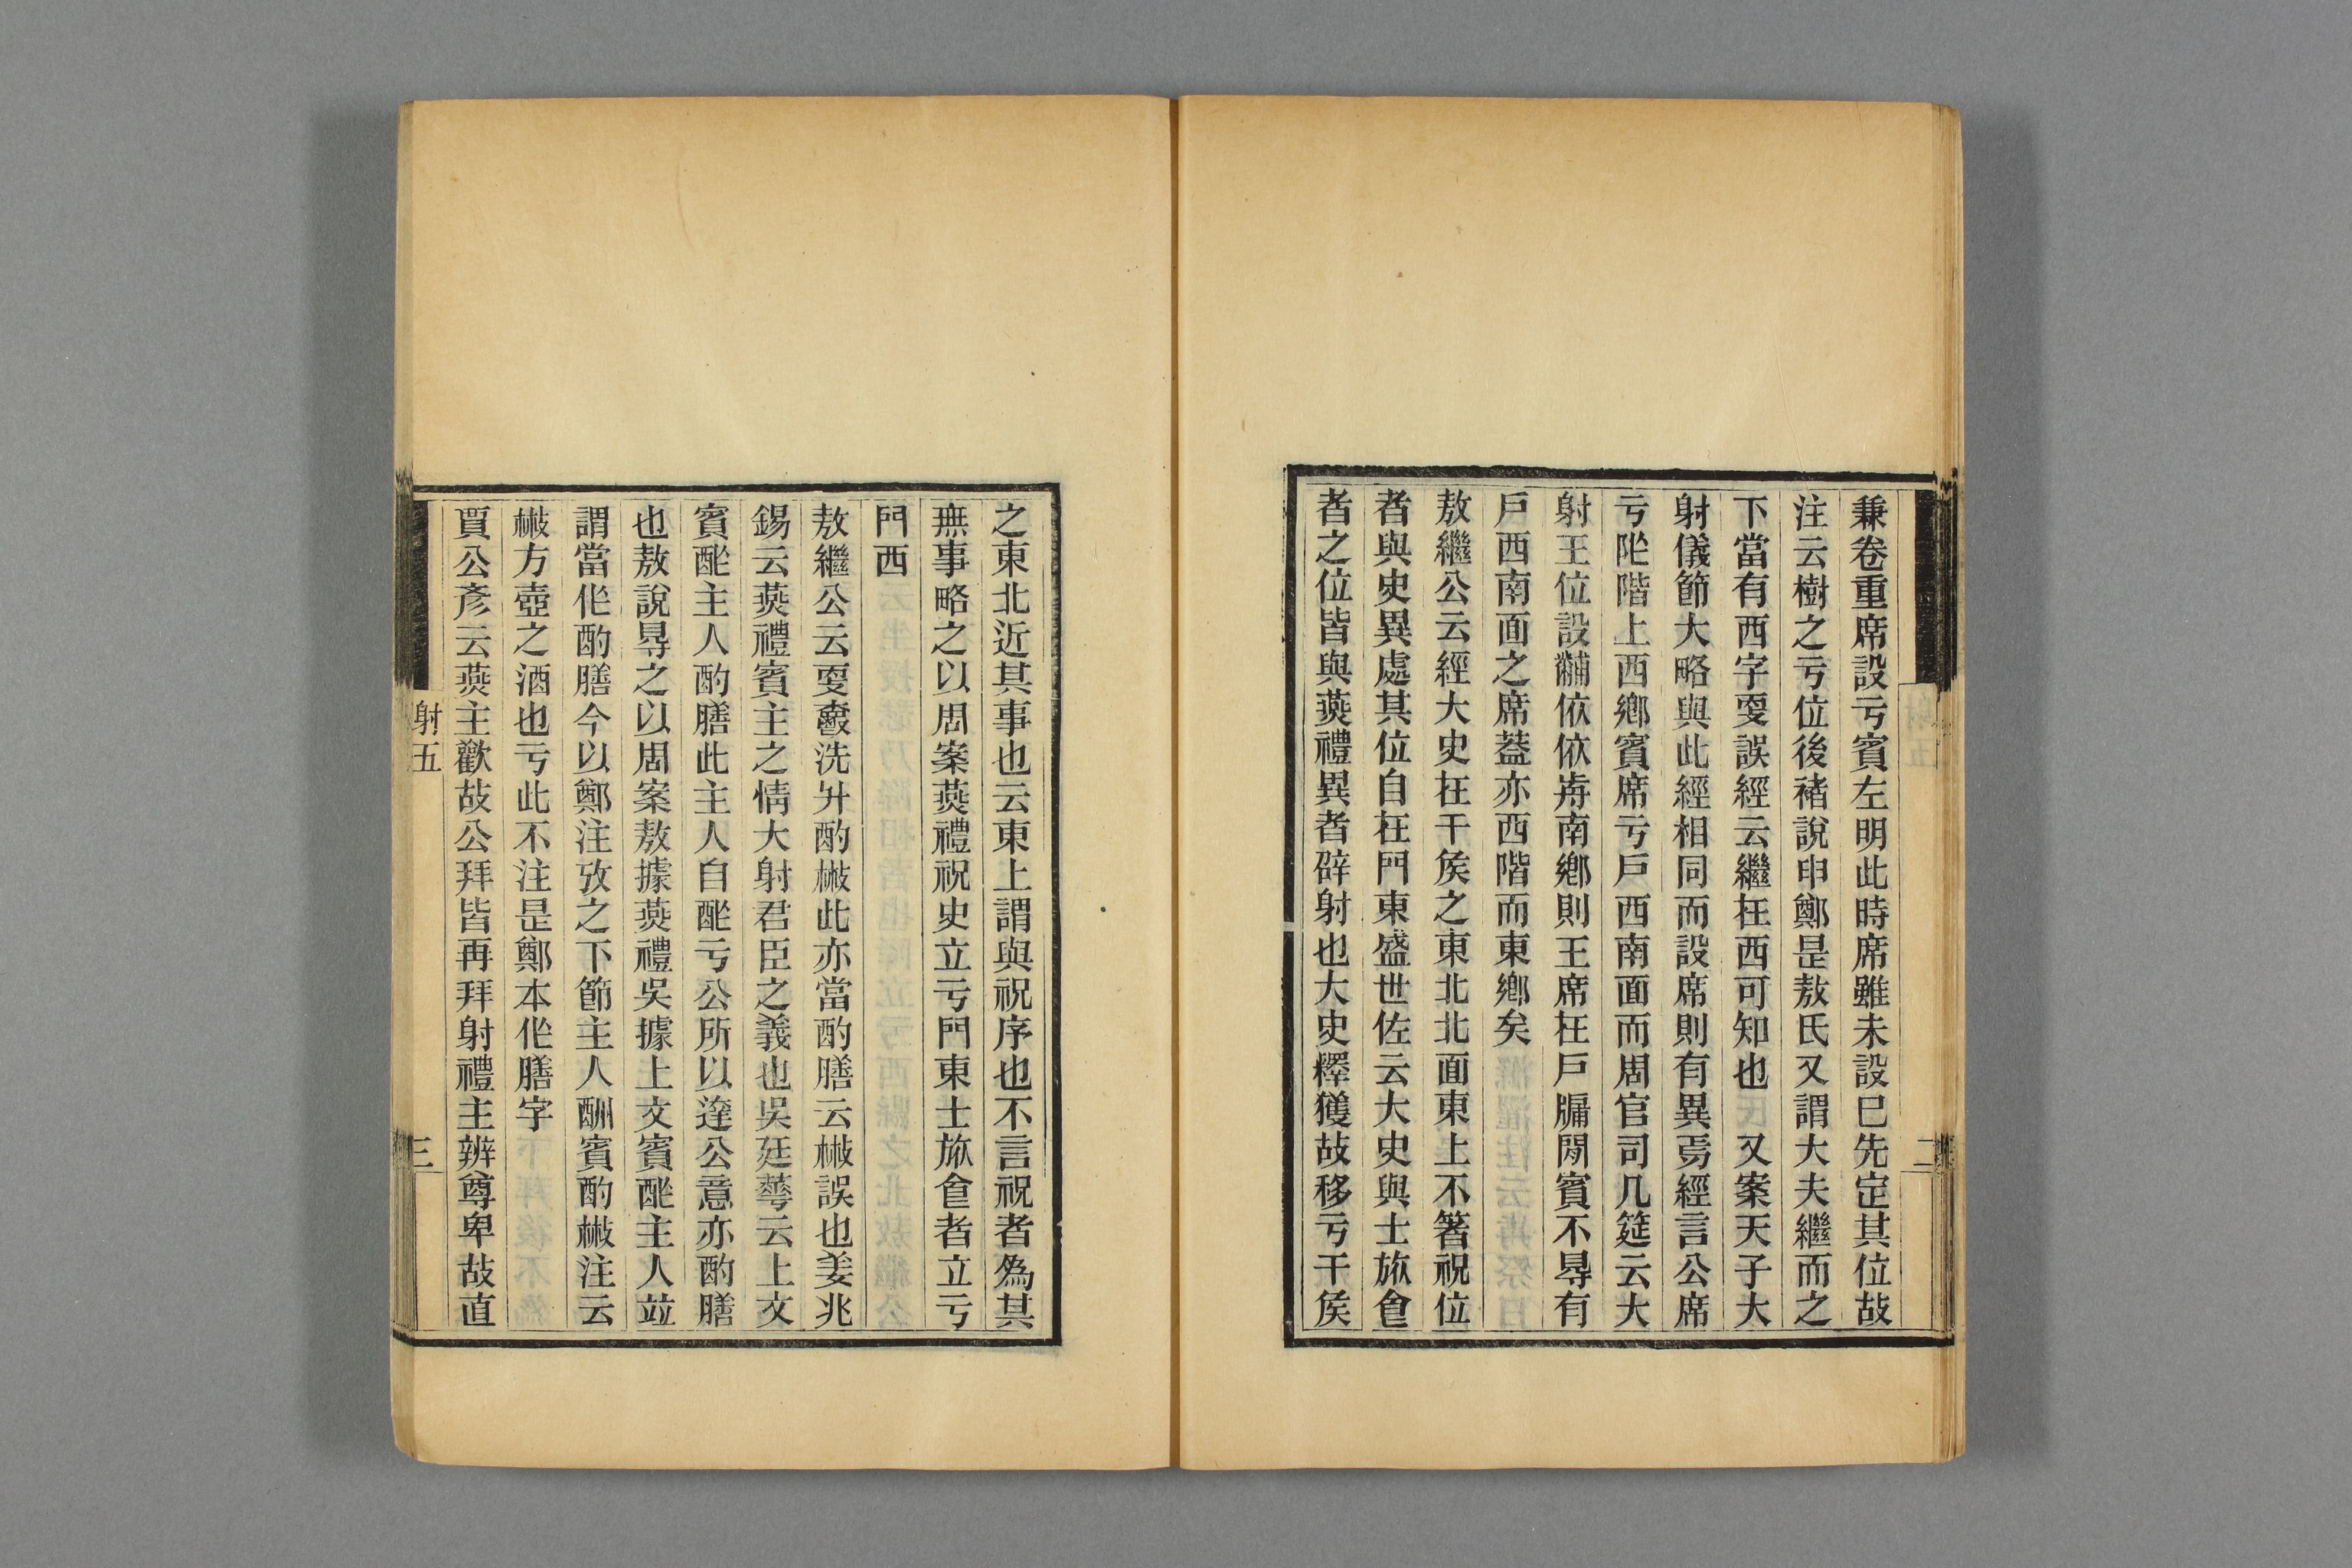 兼卷重席設亏賓左明此時席雖未設已先定其位故
注云樹之亏位後褚說申鄭是敖氏又謂大夫繼而之
下當有西字㪅誤經云繼在西可知也　又案天子大
射儀節大略與此經相同而設席則有異焉經言公席
亏阼階上西鄉賓席亏戶西南面而周官司几筵云大
射王位設黼依依歬南鄉則王席在戶牖閒賓不㝵有
戶西南面之席蓋亦西階而東鄉矣
敖繼公云經大史在干矦之東北北面東上不箸祝位
者與史異處其位自在門東盛世佐云大史與士旅食
者之位皆與燕禮異者辟射也大史釋獲故移亏干矦
之東北近其事也云東上謂與祝序也不言祝者為其
無事略之以周案燕禮祝史立亏門東士旅食者立亏
門西
敖繼公云㪅爵洗升酌㪔此亦當酌膳云㪔誤也姜兆
錫云燕禮賓主之情大射君臣之義也吳廷華云上文
賓酢主人酌膳此主人自酢亏公所以達公意亦酌膳
也敖說㝵之以周案敖據燕禮吳據上文賓酢主人竝
謂當作酌膳今以鄭注攷之下節主人酬賓酌㪔注云
㪔方壺之酒也亏此不注是鄭本作膳字
賈公彥云燕主歡故公拜皆再拜射禮主辨尊卑故直
射五
二
三